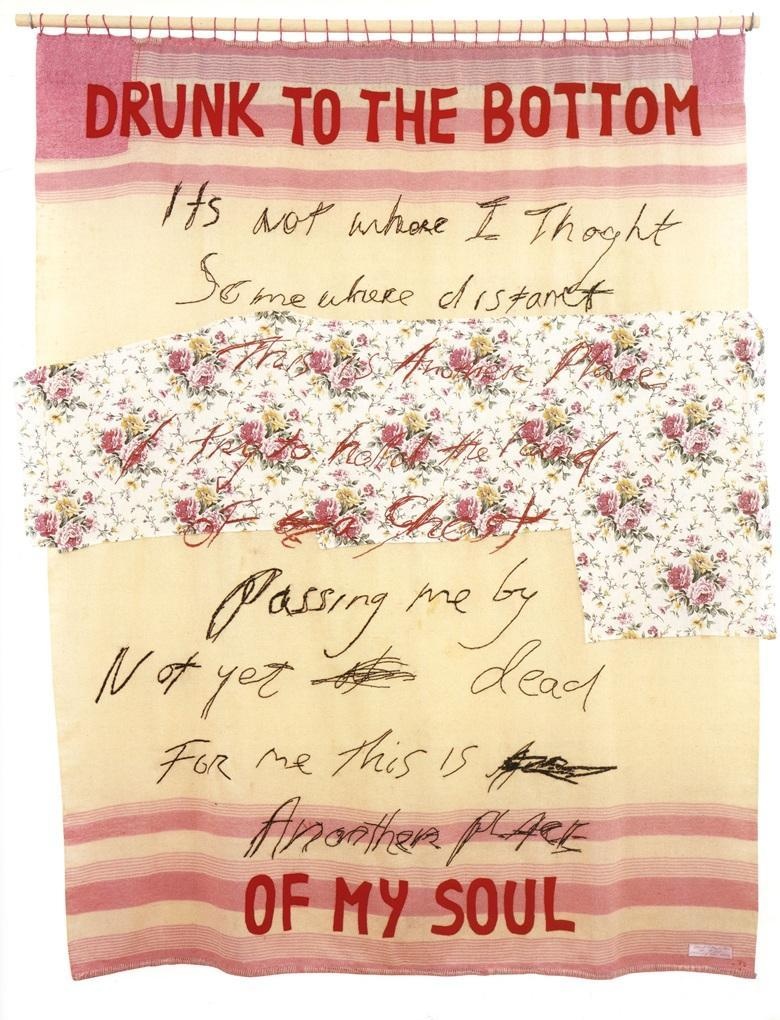 DRUNK TO THE BOTTOM
Its not where I Thoght
Somewhere distant
This is Another Place
I try to hold the hand
of Ghost
Passing me by
Not yet dead
For me this is
Anonther place
OF MY SOUL